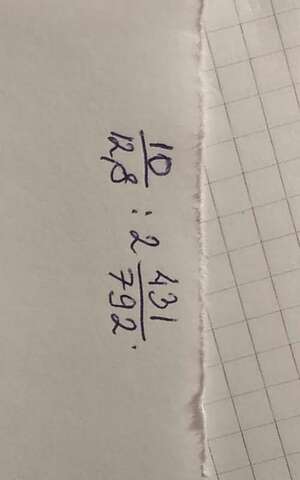 10/12,8 : 2 431/792.